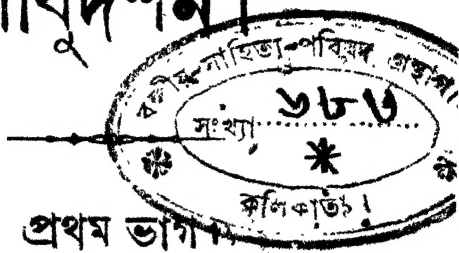 বঙ্গীয়-সাহিত্য-পরিষদ্ গ্রন্থাগার
সংখ্যা ৬৮৩
*
কলিকাতা।
প্রথম ভাগ